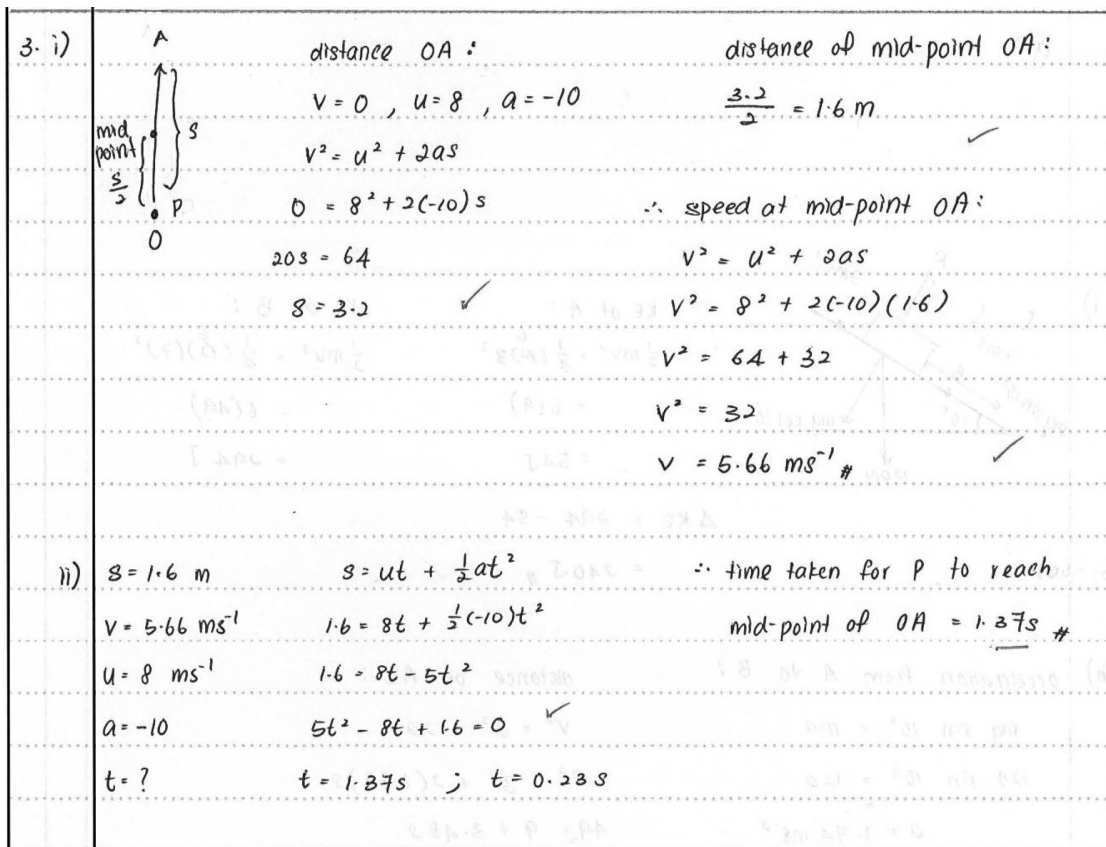 3. i)
A
mid
point
s/2
S
P
O
distance OA :
v = 0 , u = 8 , a = -10
v² = u² + 2as
0 = 8² + 2(-10) s
20s = 64
s = 3.2
distance of mid-point OA:
3.2/2 = 1.6 m
∴ speed at mid-point OA:
v² = u² + 2as
v² = 8² + 2(-10)(1.6)
v² = 64 + 32
v² = 32
v = 5.66 ms⁻¹ #
ii)
s = 1.6 m
v = 5.66 ms⁻¹
u = 8 ms⁻¹
a = -10
t = ?
s = ut + ½at²
1.6 = 8t + ½(-10)t²
1.6 = 8t - 5t²
5t² - 8t + 1.6 = 0
t = 1.37s ; t = 0.23 s
∴ time taken for P to reach
mid-point of OA = 1.37s #